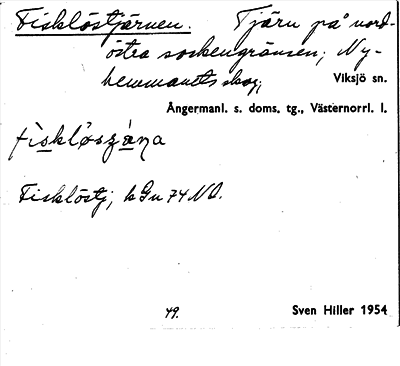 Fisklöstjärnen. Tjärn på nord-
östra sockengränsen; Ny-
hemmanets skog; Viksjö sn.
Ångermanl. s. doms. tg., Västernorrl. l.
Fisklöstj; kGn 74 NO.
49. Sven Hiller 1954